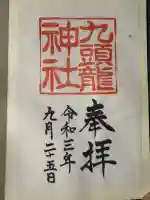 奉拝
九頭龍
神社
令和三年
九月二十五日